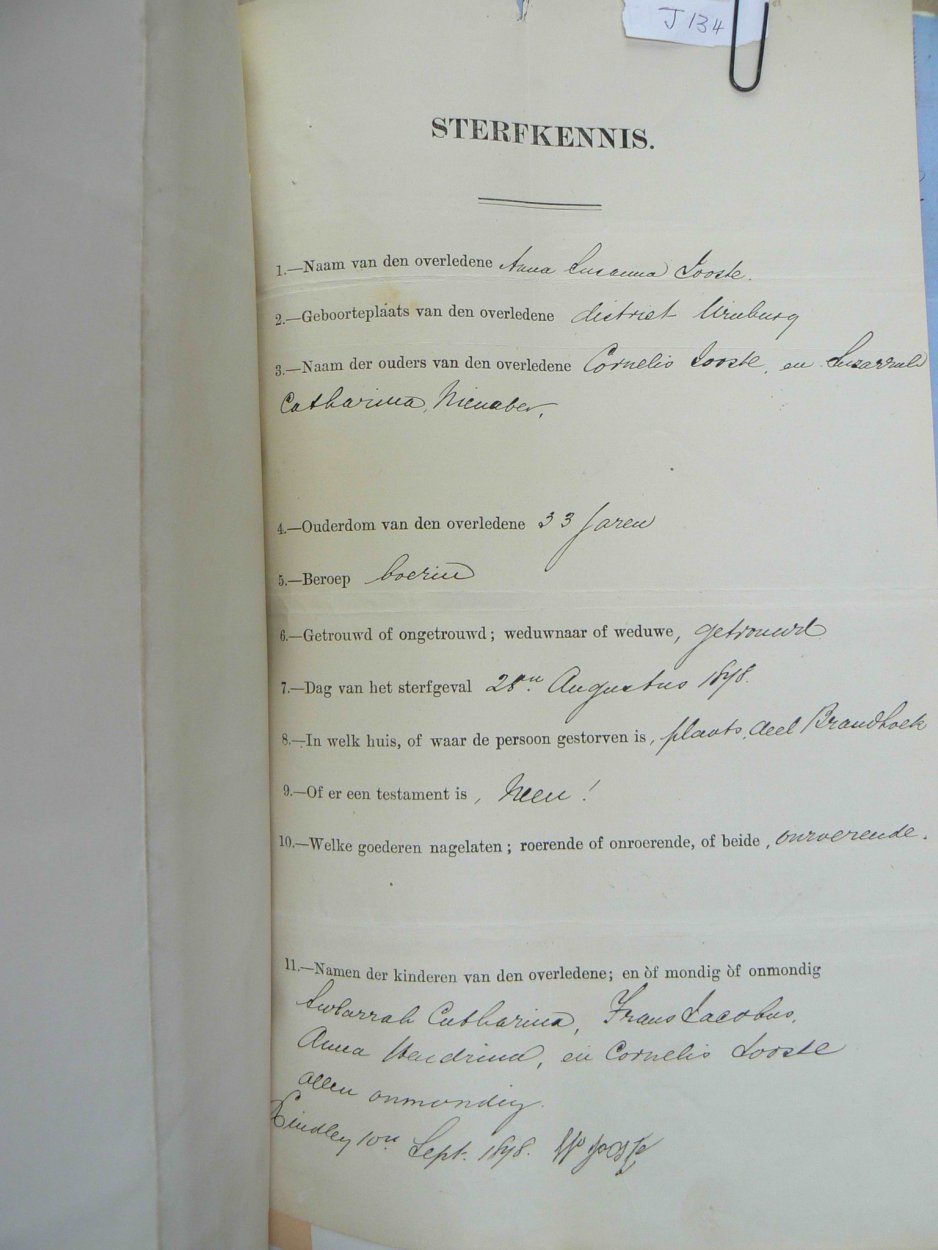 J 134
STERFKENNIS.
1.—Naam van den overledene Anna Susanna Jooste.
2.—Geboorteplaats van den overledene district Winburg
3.—Naam der ouders van den overledene Cornelis Jooste, en
Catharina, Nienaber.
4.—Ouderdom van den overledene 33 Jaren
5.—Beroep boerin
6.—Getrouwd of ongetrouwd; weduwnaar of weduwe, getrouwd
7.—Dag van het sterfgeval 28en. Augustus 1898.
8.—In welk huis, of waar de persoon gestorven is, plaats, deel Brandhoek
9.—Of er een testament is, Neen!
10.—Welke goederen nagelaten; roerende of onroerende, of beide, onroerende.
11.—Namen der kinderen van den overledene; en òf mondig òf onmondig
Catharina, Frans Jacobus,
Anna Hendrina, en Cornelis Jooste
allen onmondig.
Lindley 10en Sept. 1898. Jooste